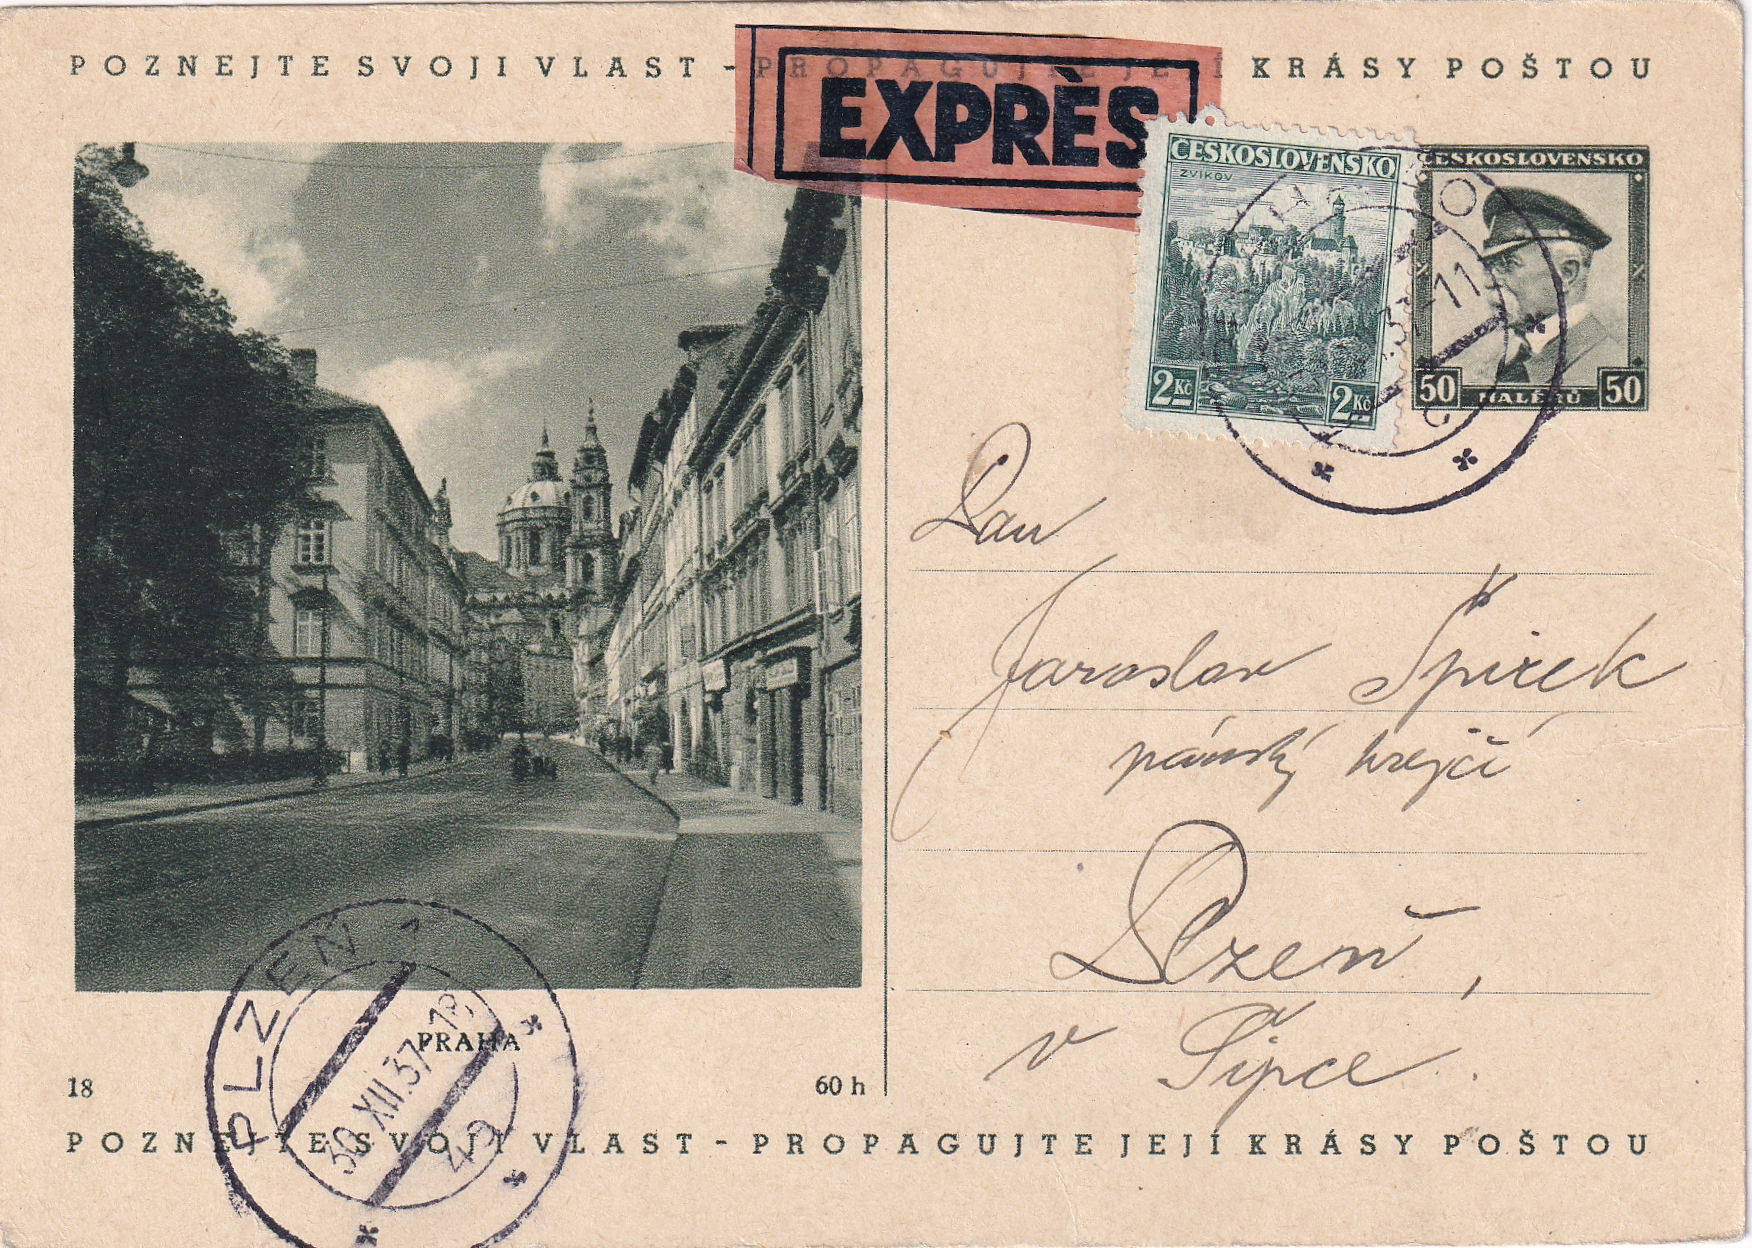 POZNEJTE SVOJI VLAST - PROPAGUJTE JEJÍ KRÁSY POŠTOU
EXPRÈS
ČESKOSLOVENSKO
ZVÍKOV
2 Kč 2 Kč
ČESKOSLOVENSKO
50 HALÉŘŮ 50
37-11
Pan
Jaroslav Špirek
pánský krejčí
Plzeň,
v Šipce.
PRAHA
18
60 h
PLZEŇ 1
30.XII.37-18
49
POZNEJTE SVOJI VLAST - PROPAGUJTE JEJÍ KRÁSY POŠTOU